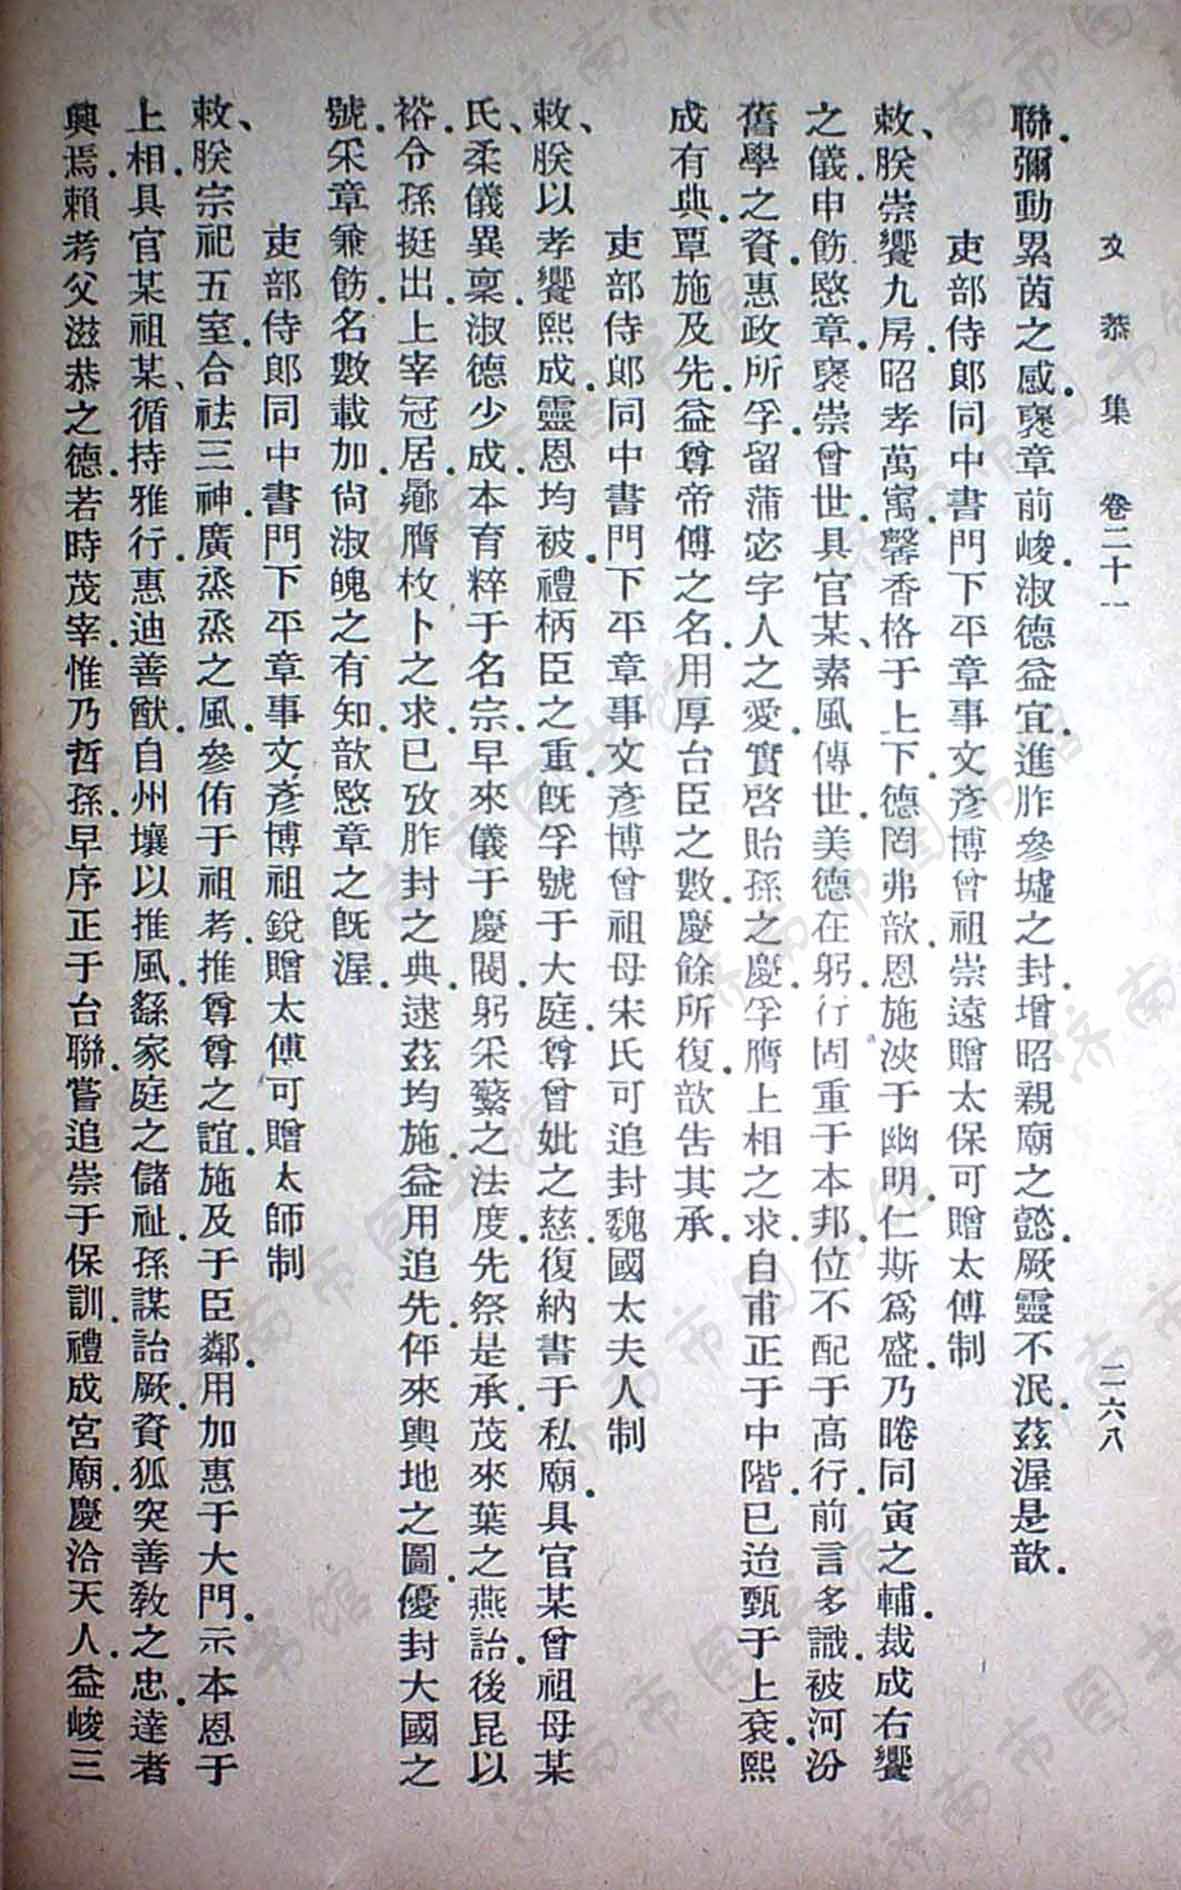 文恭集 卷二十一 二六八
聯.彌動累茵之感.襃章前峻.淑德益宜.進胙參墟之封.增昭親廟之懿.厥靈不泯.茲渥是歆.
吏部侍郞同中書門下平章事文彥博曾祖崇遠贈太保可贈太傅制
敕、朕崇饗九房.昭孝萬㝢.馨香格于上下.德罔弗歆.恩施浹于幽明.仁斯爲盛.乃睠同寅之輔.裁成右饗
之儀.申飭愍章.襃崇曾世.具官某、素風傳世.美德在躬.行固重于本邦.位不配于高行.前言多識.被河汾
舊學之資.惠政所孚.留蒲宓字人之愛.實啓貽孫之慶.孚膺上相之求.自甫正于中階.已迨甄于上袞.熙
成有典.覃施及先.益尊帝傅之名.用厚台臣之數.慶餘所復.歆吿其承.
吏部侍郞同中書門下平章事文彥博曾祖母宋氏可追封魏國太夫人制
敕、朕以孝饗熙成.靈恩均被.禮柄臣之重.旣孚號于大庭.尊曾妣之慈.復納書于私廟.具官某曾祖母某
氏、柔儀異稟.淑德少成.本育粹于名宗.早來儀于慶閥.躬采蘩之法度.先祭是承.茂來葉之燕詒.後昆以
裕.令孫挺出.上宰冠居.鄕膺枚卜之求.已攷胙封之典.逮茲均施.益用追先.伻來輿地之圖.優封大國之
號.采章兼飭.名數載加.尙淑魄之有知.歆愍章之旣渥.
吏部侍郞同中書門下平章事文彥博祖銳贈太傅可贈太師制
敕、朕宗祀五室.合祛三神.廣烝烝之風.參侑于祖考.推尊尊之誼.施及于臣鄰.用加惠于大門.示本恩于
上相.具官某祖某、循持雅行.惠迪善猷.自州壤以推風.繇家庭之儲祉.孫謀詒厥.資狐突善敎之忠.達者
興焉.賴考父滋恭之德.若時茂宰.惟乃哲孫.早序正于台聯.嘗追崇于保訓.禮成宮廟.慶洽天人.益峻三